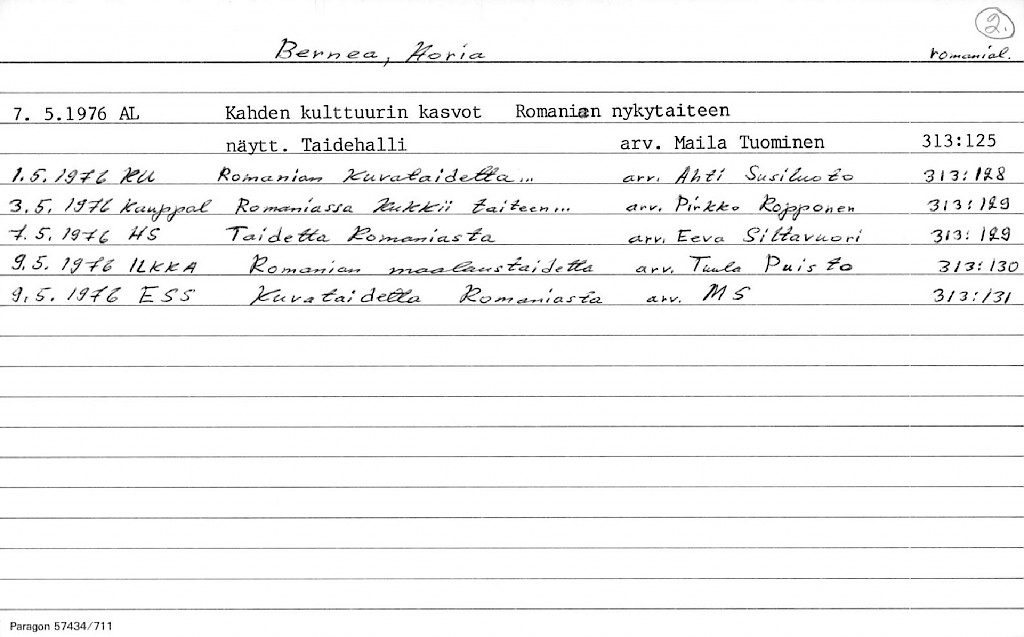 2.
Bernea, Horia romanial.
7. 5.1976 AL Kahden kulttuurin kasvot Romanian nykytaiteen
näytt. Taidehalli arv. Maila Tuominen 313:125
1.5.1976 KU Romanian Kuvataidetta... arv. Ahti Susiluoto 313:128
3.5.1976 Kauppal Romaniassa Kukkii taiteen... arv. Pirkko Rojponen 313:129
7.5.1976 HS Taidetta Romaniasta arv. Eeva Siltavuori 313:129
9.5.1976 ILKKA Romanian maalaustaidetta arv. Tuula Puisto 313:130
9.5.1976 ESS Kuvataidetta Romaniasta arv. MS 313:131
Paragon 57434/711